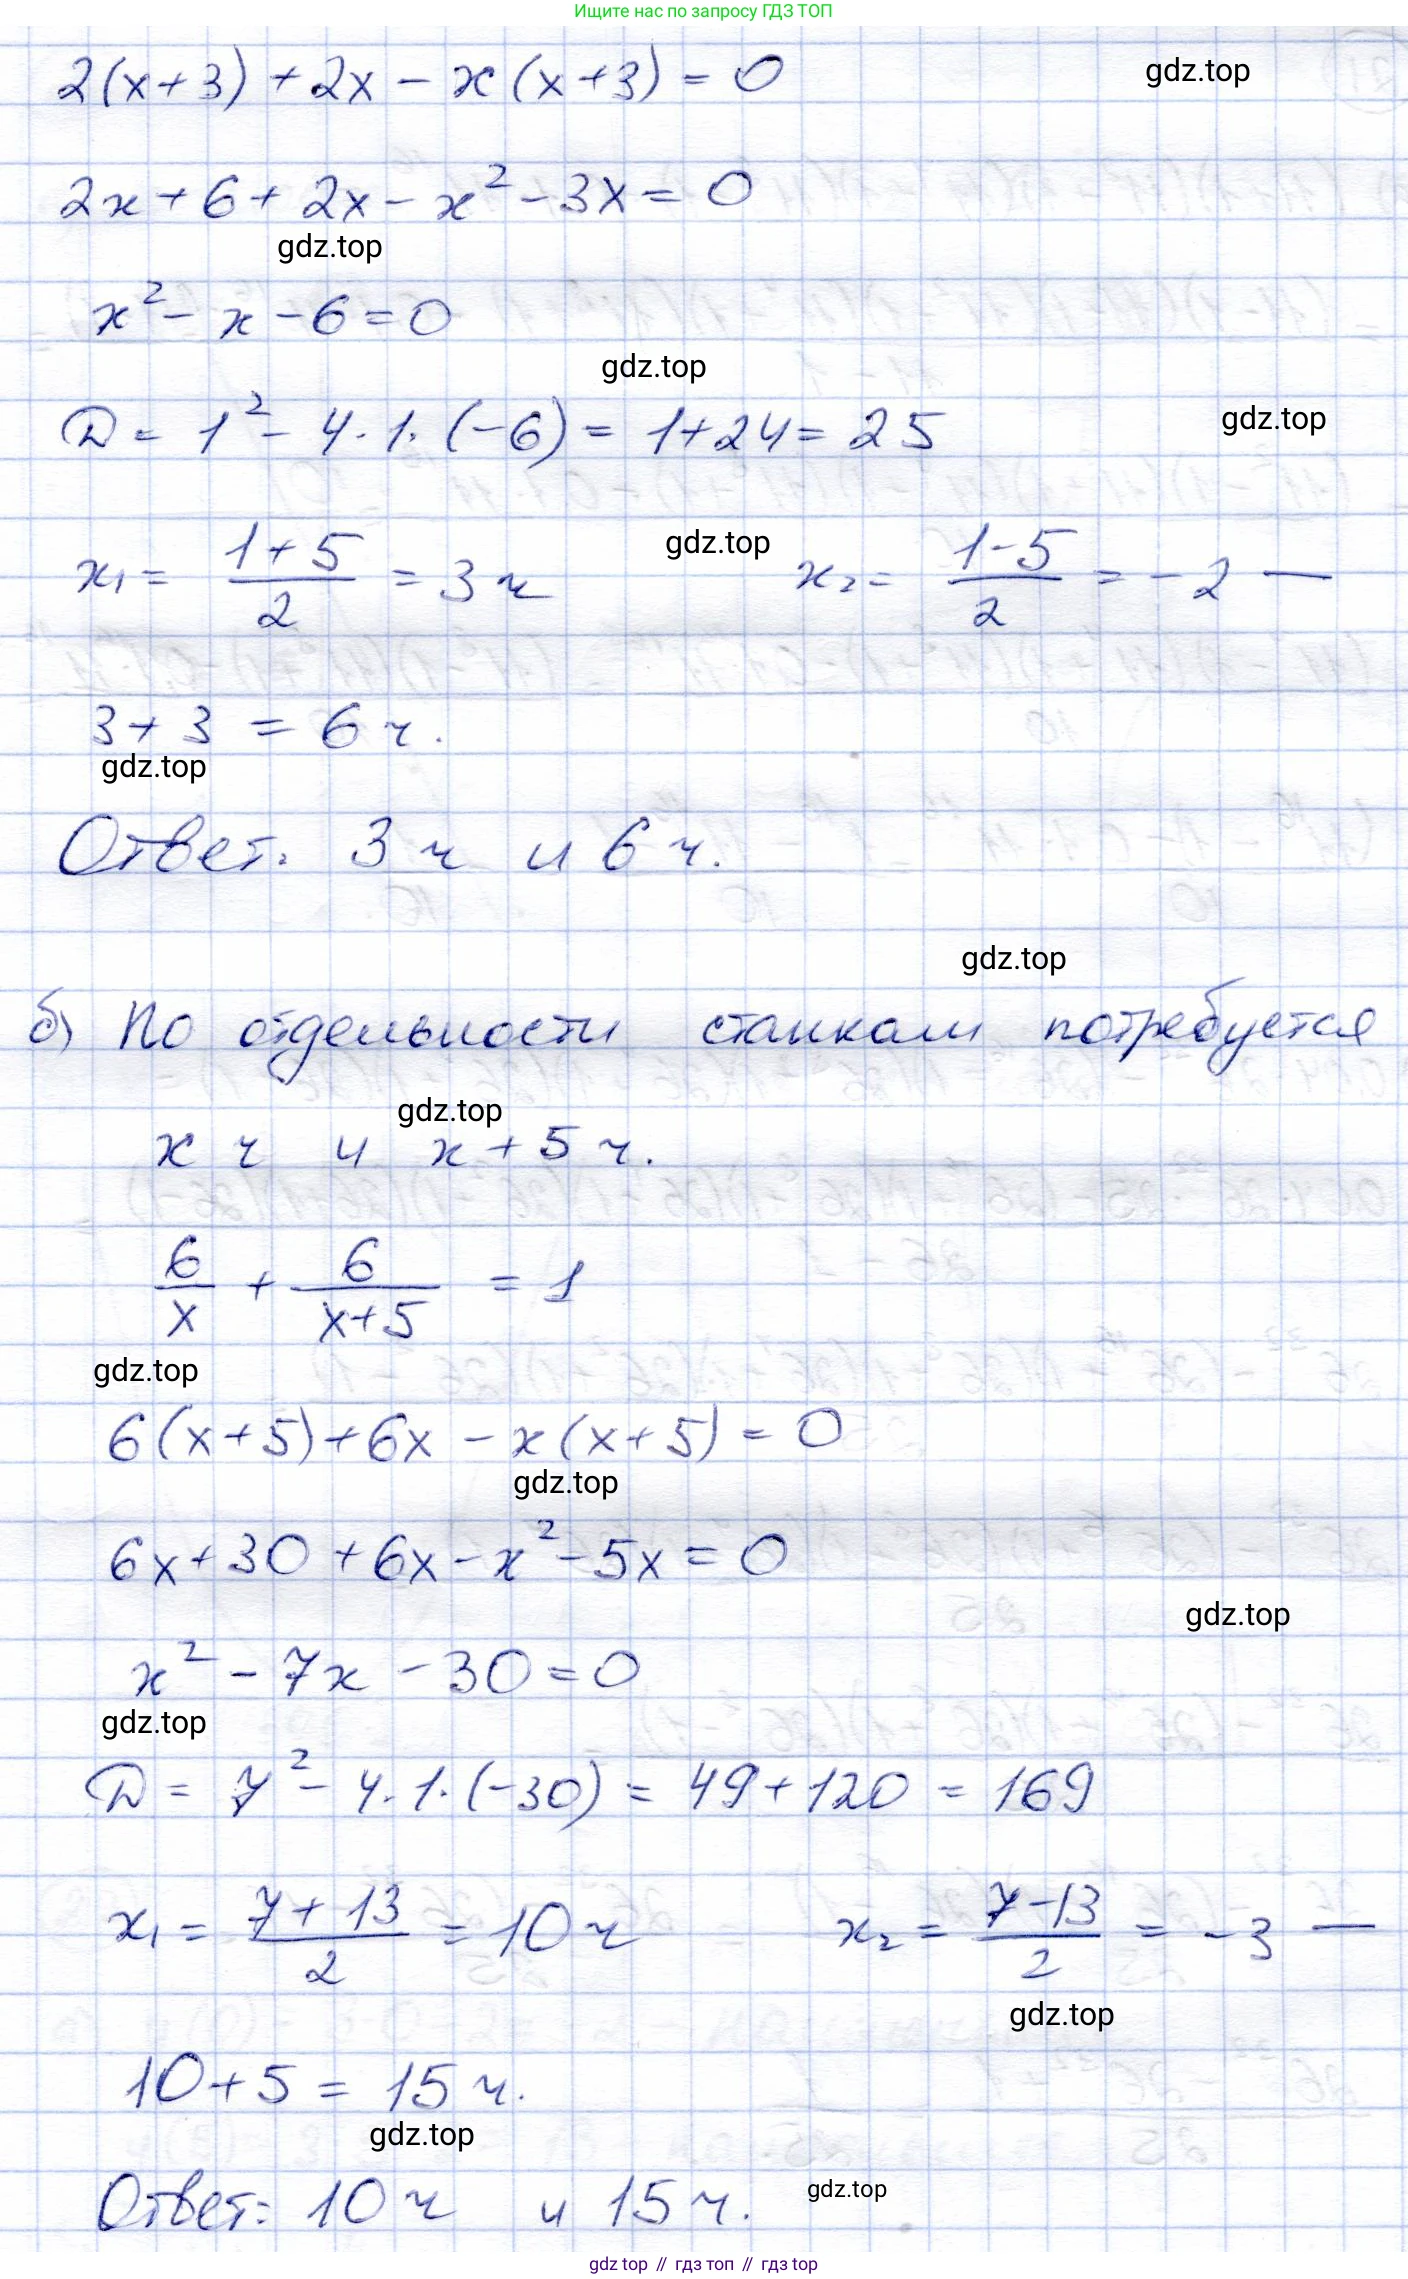 Ищите нас по запросу ГДЗ ТОП
2(x+3)+2x-x(x+3)=0
gdz.top
2x+6+2x-x²-3x=0
gdz.top
x²-x-6=0
gdz.top
D=1²-4·1·(-6)=1+24=25
gdz.top
x₁= (1+5)/2 =3 ч gdz.top x₂= (1-5)/2 =-2 —
3+3=6 ч.
gdz.top
Ответ: 3 ч и 6 ч.
gdz.top
б) По отдельности станкам потребуется
gdz.top
x ч и x+5 ч.
6/x + 6/(x+5) = 1
gdz.top
6(x+5)+6x-x(x+5)=0
gdz.top
6x+30+6x-x²-5x=0
gdz.top
x²-7x-30=0
gdz.top
D=7²-4·1·(-30)=49+120=169
x₁= (7+13)/2 =10 ч x₂= (7-13)/2 =-3 —
gdz.top
10+5=15 ч.
gdz.top
Ответ: 10 ч и 15 ч.
gdz.top
gdz top // гдз топ // гдз top